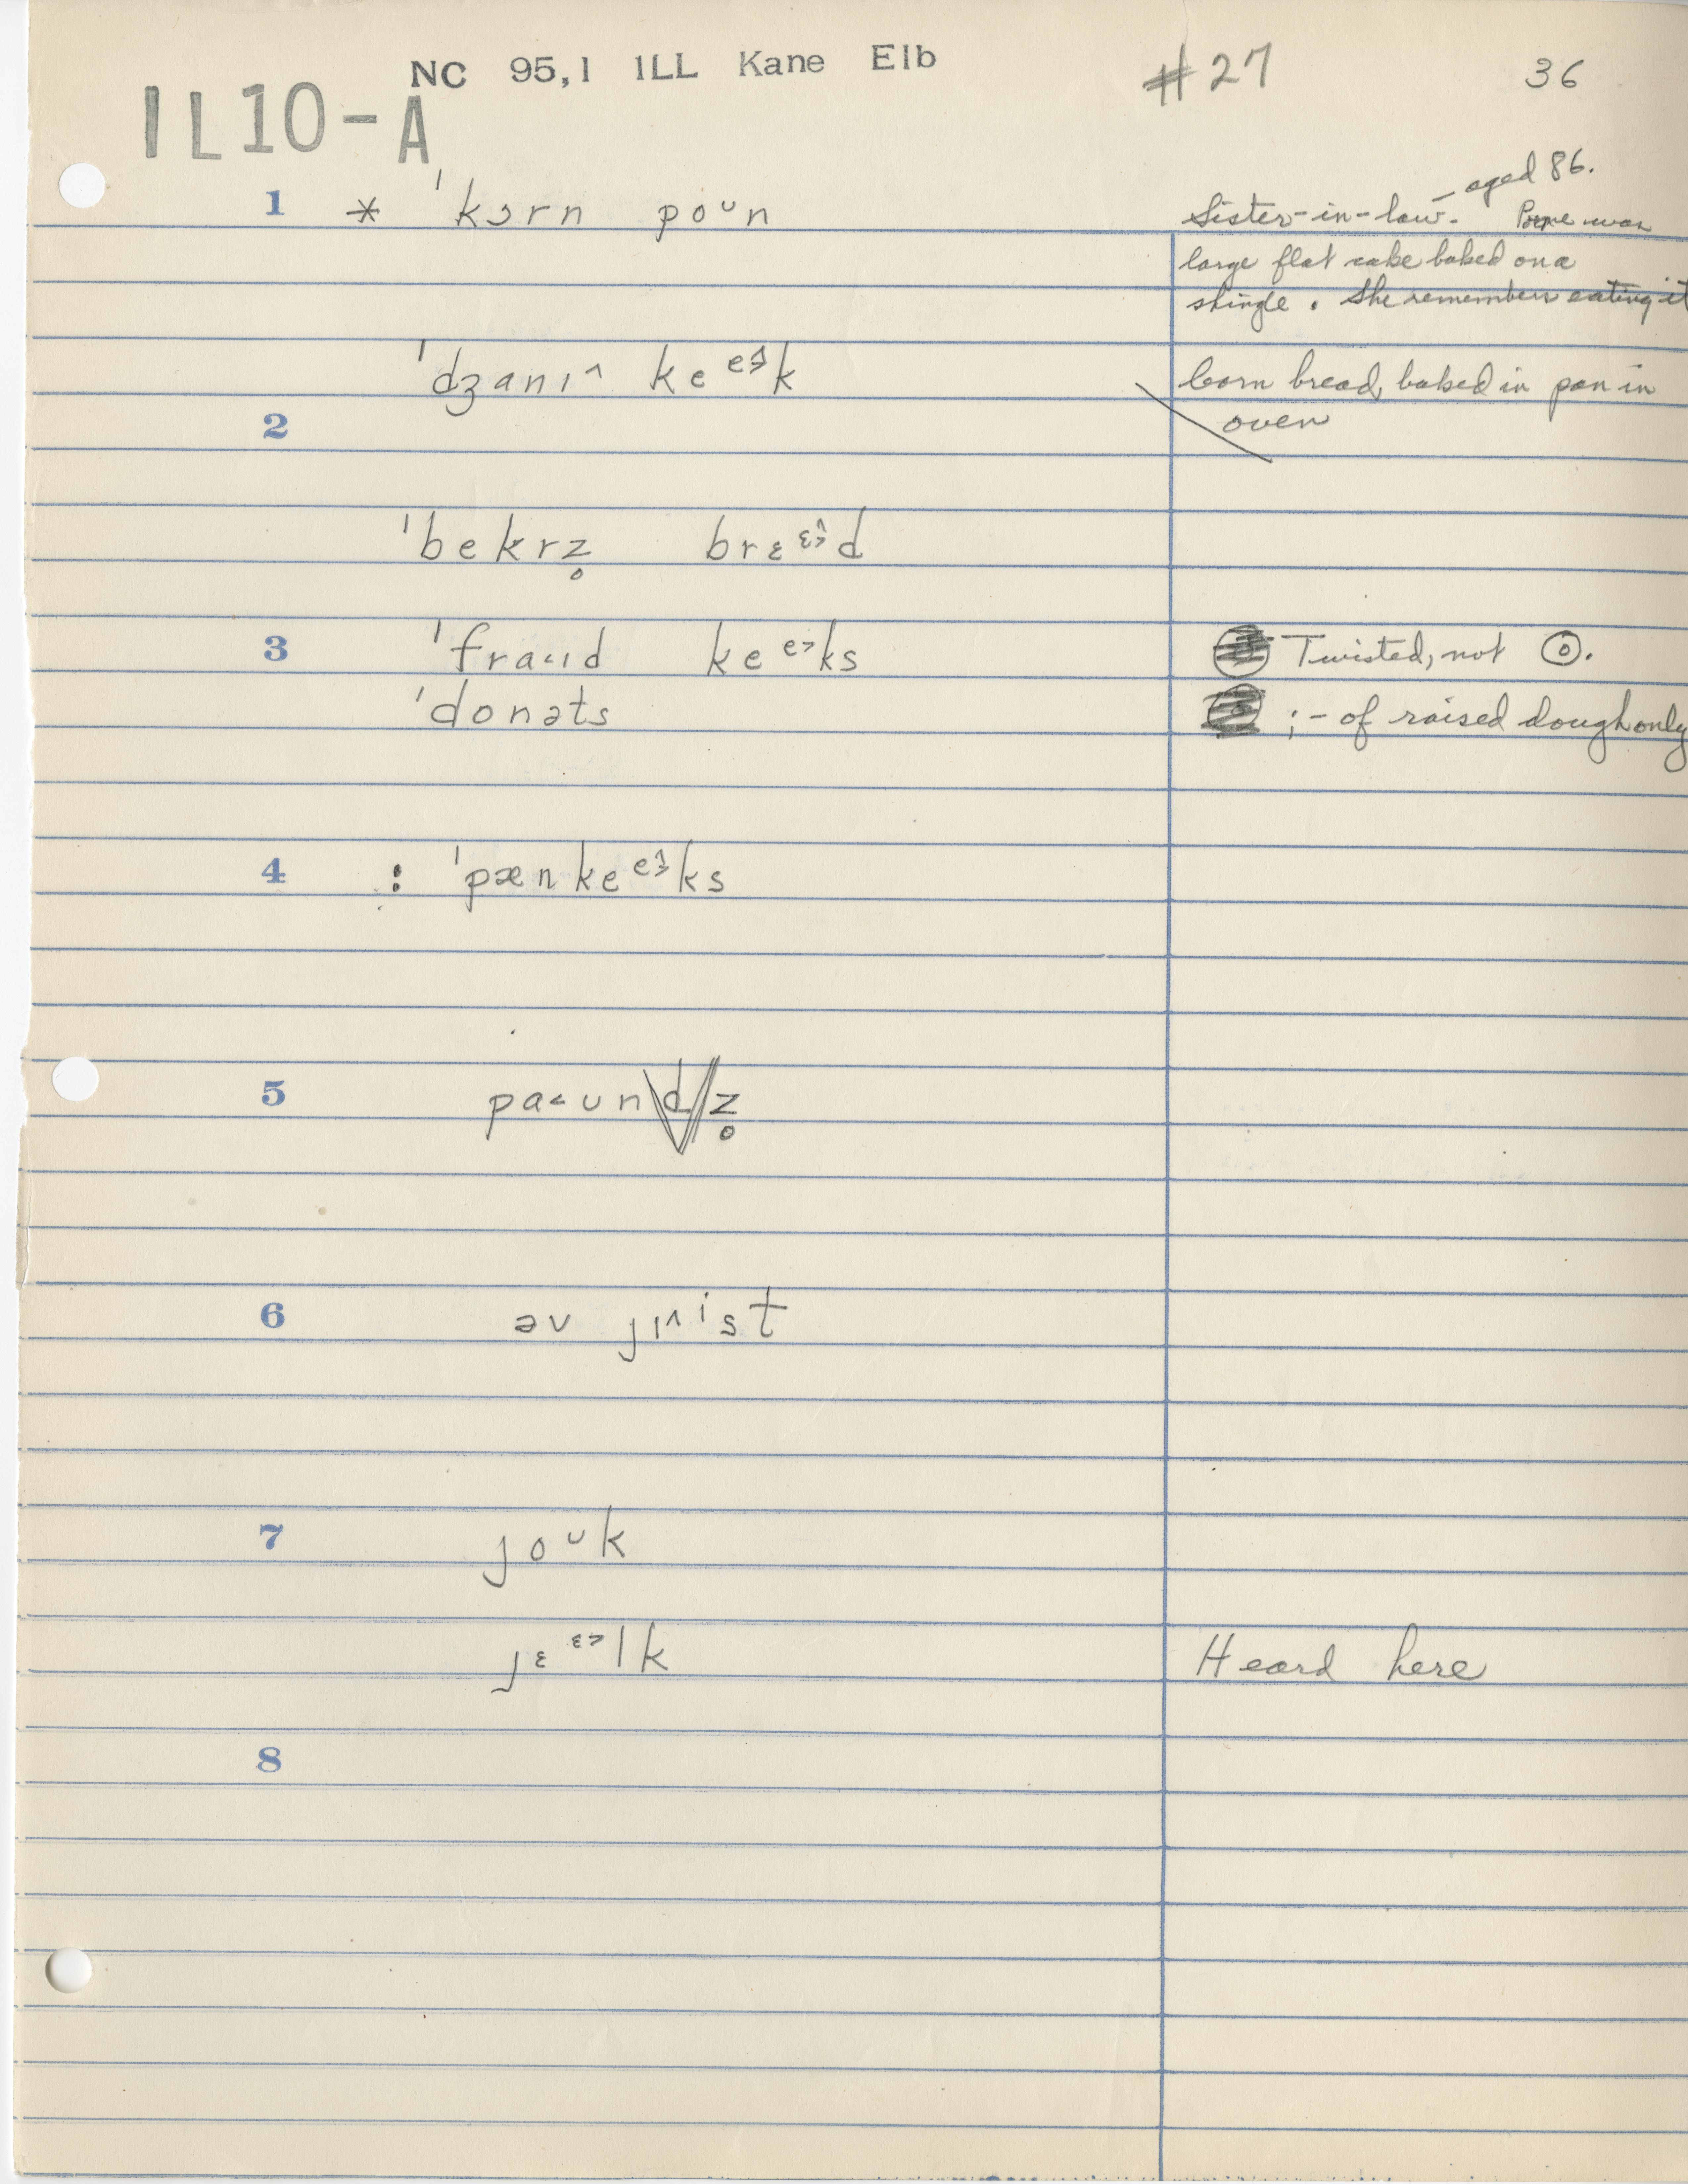 NC 95,1 ILL Kane Elb #27 36
IL10-A
- aged 86.
1 * ˈkɔrn poᶷn Sister-in-law. Pone was
large flat cake baked on a
shingle. She remembers eating it
ˈdʒanɪ^ keᵉ˃^k Corn bread, baked in pan in
2 oven
ˈbekrz̥ brɛᵋ˃^d
3 ˈfra˂ɪd keᵉ˃ks Twisted, not ⊙.
ˈdonəts ; - of raised dough only
4 : ˈpænkeᵉ˃^ks
5 pa˂und z̥
6 əv jɪ^ⁱst
7 joᶷk
jɛᵋ˃lk Heard here
8